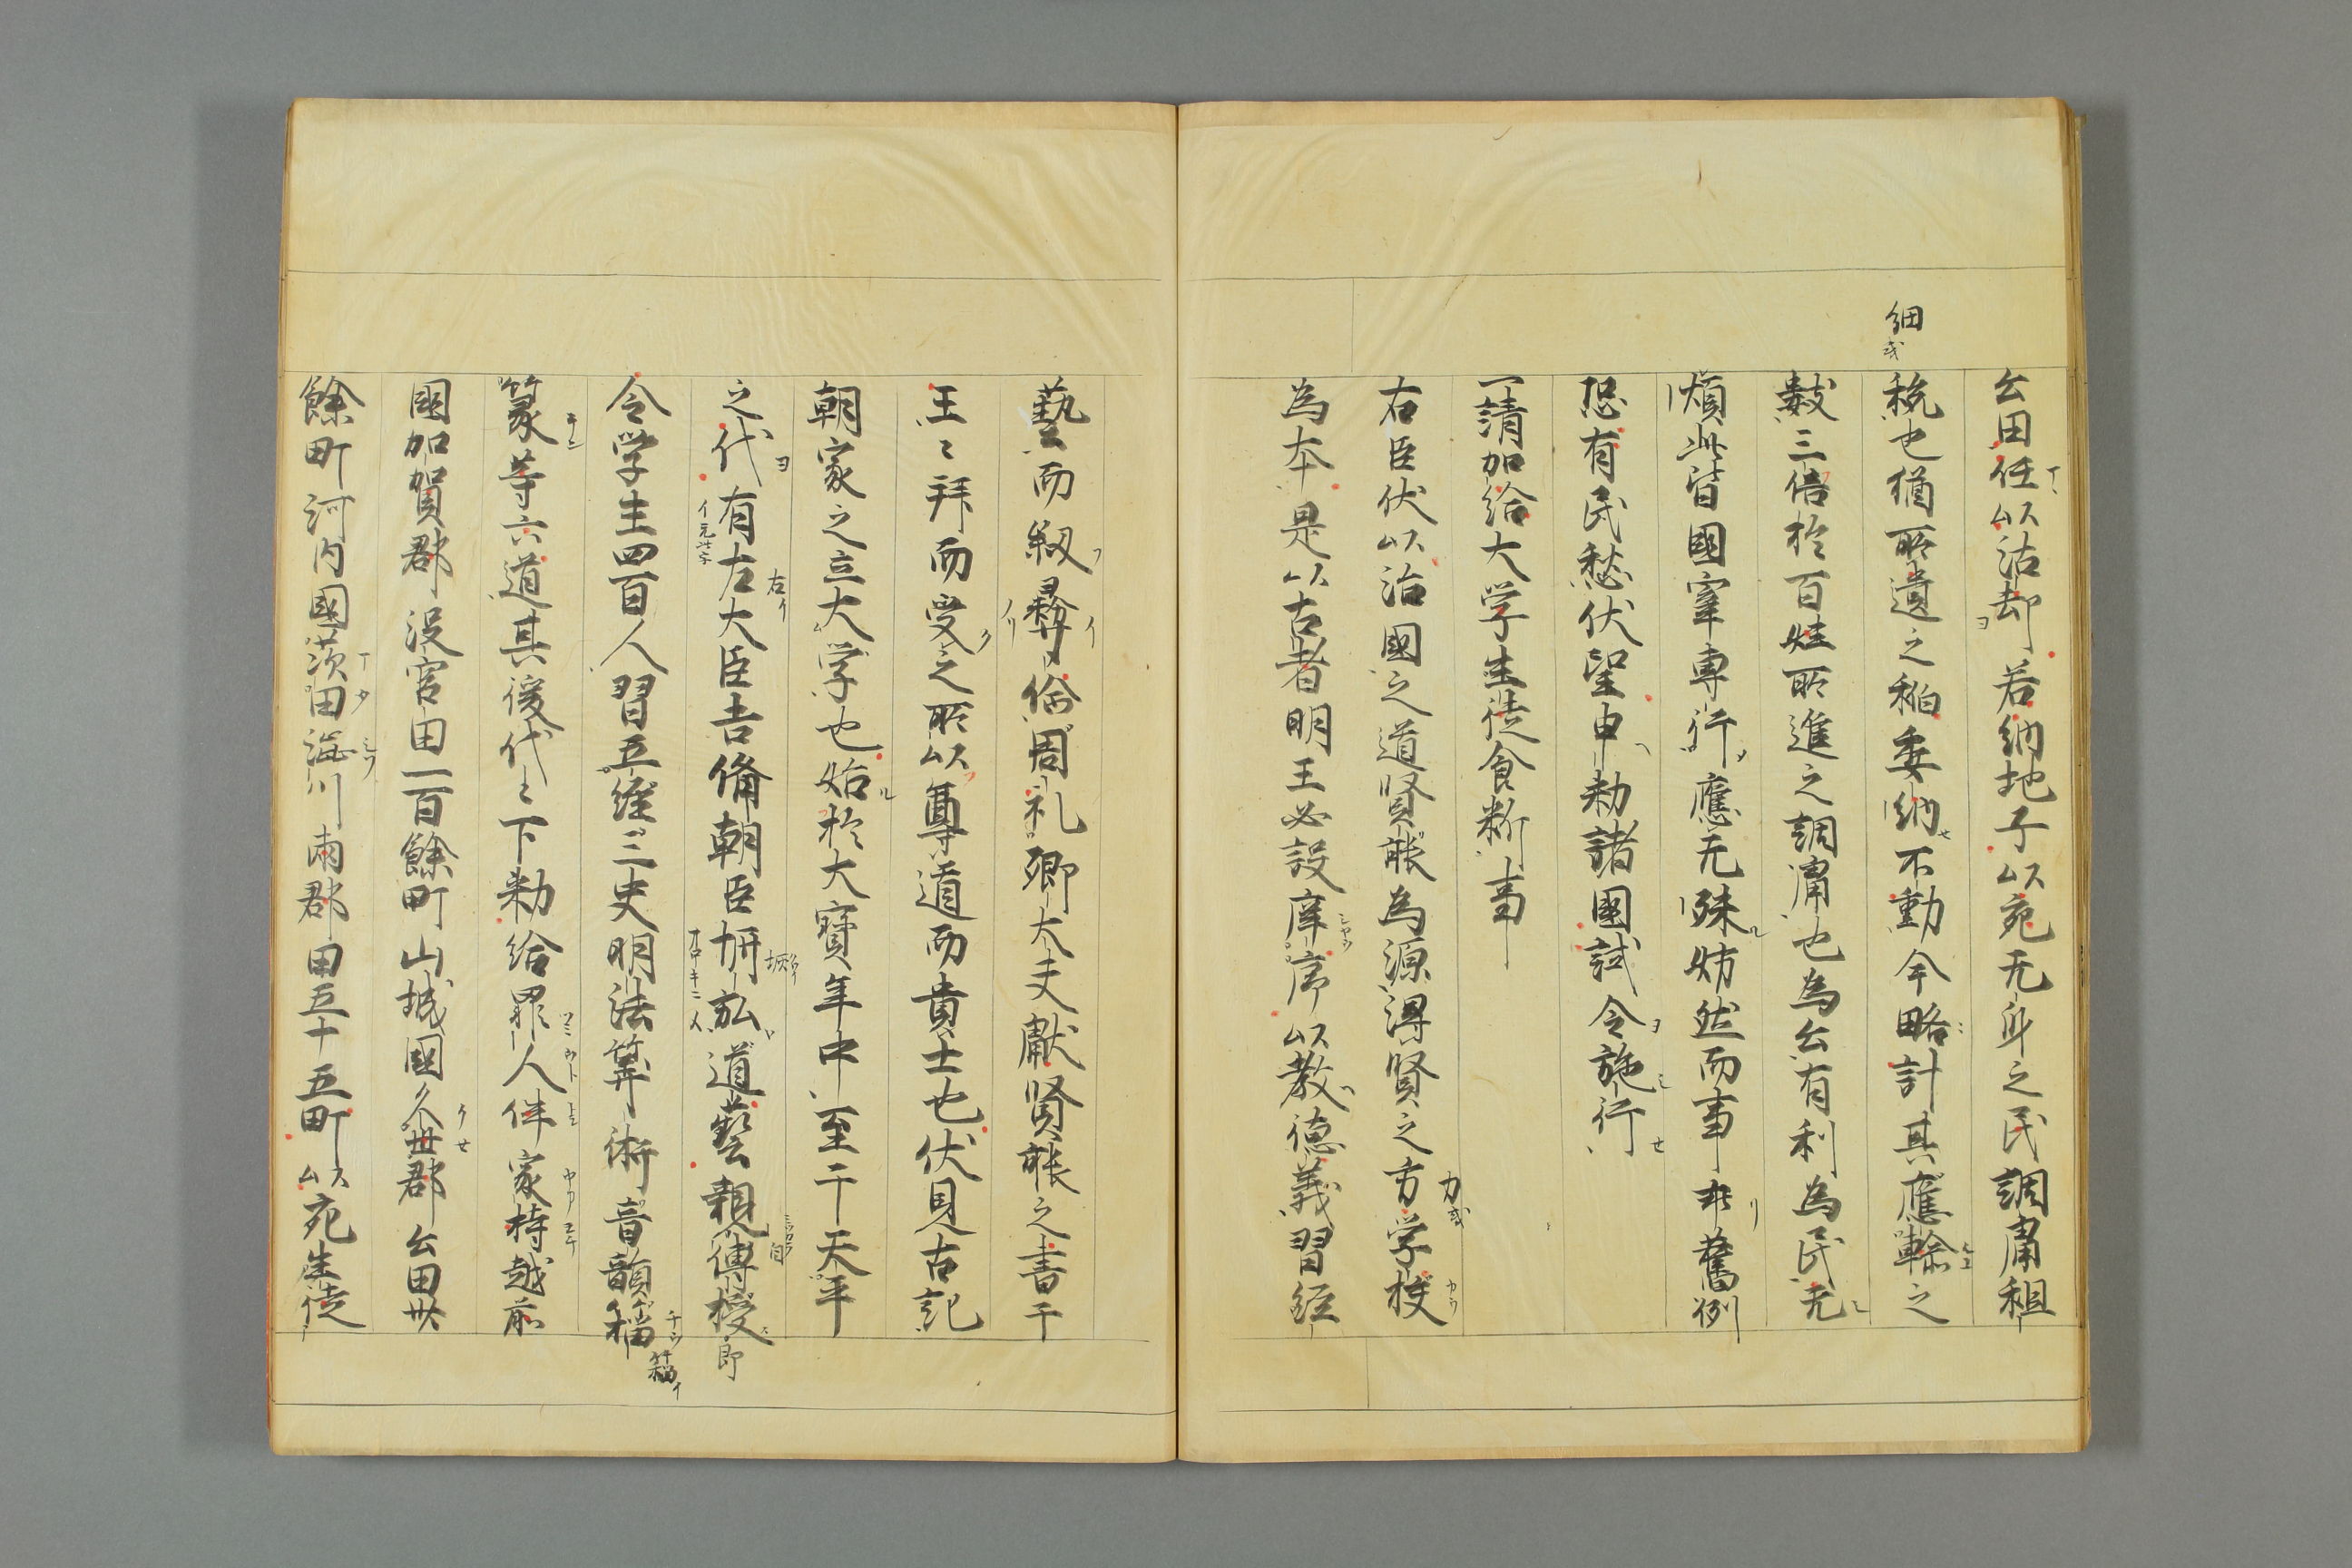 公田任以沽却若納地子以宛无身之民調庸租
細或
税也猶所遺之稲委納不動今略計其應輸之
數三倍於百姓所進之調庸也為公有利為民无
煩此皆國宰專行應无殊妨然而事乖舊例
恐有民愁伏望申勅諸國試令施行
一請加給大学生徒食料事
右臣伏以治國之道賢能為源得賢之方学校
力或
為本是以古者明王必設庠序以教德義習經
藝而叙彝倫周礼卿大夫獻賢能之書于
王〻拜而受之所以尊道而貴士也伏見古記
朝家之立大学也始於大寶年中至于天平
之代有左大臣吉備朝臣恢弘道藝親傳授即
右イ
令学生四百人習五經三史明法筭術音韻籀
篆等六道其後代〻下勅給罪人伴家持越前
國加賀郡没官田一百餘町山城國久世郡公田卅
餘町河内國茨田渋川兩郡田五十五町以宛生徒